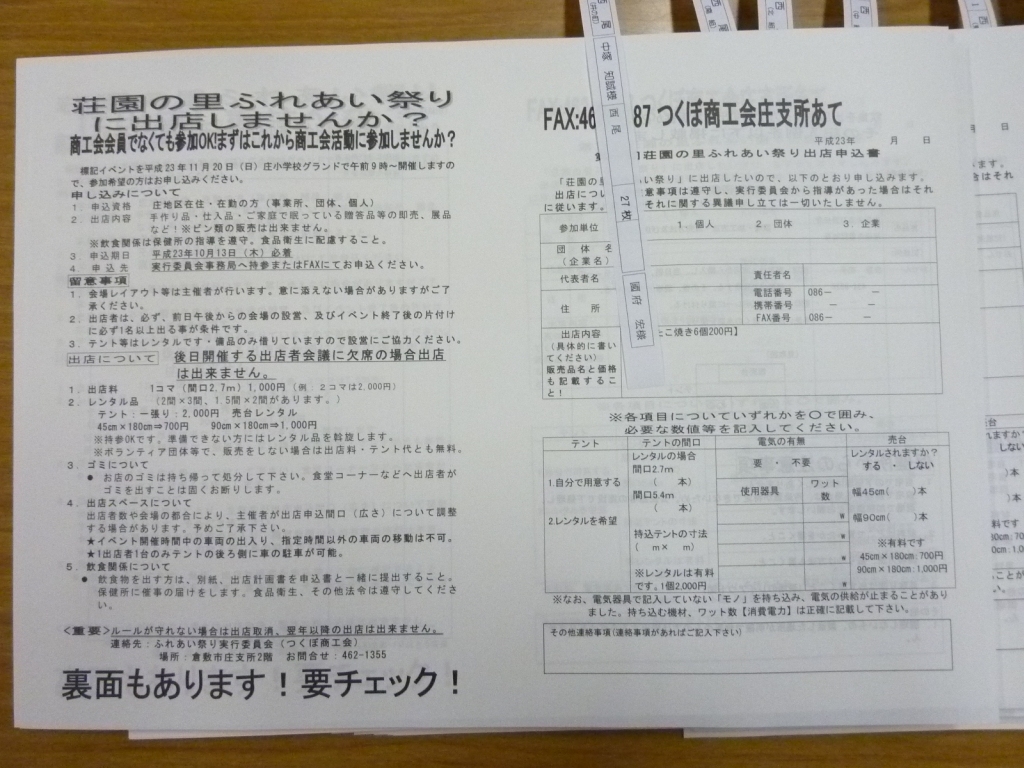 荘園の里ふれあい祭り
に出店しませんか？
商工会会員でなくても参加OK!まずはこれから商工会活動に参加しませんか？
標記イベントを平成23年11月20日（日）庄小学校グランドで午前9時～開催しますの
で、参加希望の方はお申し込みください。
申し込みについて
1．申込資格　庄地区在住・在勤の方（事業所、団体、個人）
2．出店内容　手作り品・仕入品・ご家庭で眠っている贈答品等の即売、展品
など！※ビン類の販売は出来ません。
※飲食関係は保健所の指導を遵守。食品衛生に配慮すること。
3．申込期日　平成23年10月13日（木）必着
4　申込先　実行委員会事務局へ持参またはFAXにてお申込ください。
留意事項
1．会場レイアウト等は主催者が行います。意に添えない場合がありますがご了
承ください。
2．出店者は、必ず、前日午後からの会場の設営、及びイベント終了後の片付け
に必ず1名以上出る事が条件です。
3．テント等はレンタルです・備品のみ借りていますので設営にご協力ください。
出店について　後日開催する出店者会議に欠席の場合出店
は出来ません。
1．出店料　1コマ（間口2.7m）1,000円（例：2コマは2,000円）
2．レンタル品　（2間×3間、1.5間×2間があります。）
テント：一張り：2,000円　売台レンタル
45cm×180cm⇒700円　90cm×180cm⇒1,000円
※持参OKです。準備できない方にはレンタル品を斡旋します。
※ボランティア団体等で、販売をしない場合は出店料・テント代とも無料。
3．ゴミについて
● お店のゴミは持ち帰って処分して下さい。食堂コーナーなどへ出店者が
ゴミを出すことは固くお断りします。
4．出店スペースについて
出店者数や会場の都合により、主催者が出店申込間口（広さ）について調整
する場合があります。予めご了承下さい。
★イベント開催時間中の車両の出入り、指定時間以外の車両の移動は不可。
★1出店者1台のみテントの後ろ側に車の駐車が可能。
5．飲食関係について
● 飲食物を出す方は、別紙、出店計画書を申込書と一緒に提出すること。
保健所に催事の届けをします。食品衛生、その他法令は遵守してくださ
い。
＜重要＞ルールが守れない場合は出店取消、翌年以降の出店は出来ません。
連絡先：ふれあい祭り実行委員会（つくぼ商工会）
場所：倉敷市庄支所2階　お問合せ：462-1355
裏面もあります！要チェック！
西尾
中塚
西尾
27枚
國府
FAX:46 87 つくぼ商工会庄支所あて
平成23年　月　日
荘園の里ふれあい祭り出店申込書
「荘園の里 い祭り」に出店したいので、以下のとおり申し込みます。
出店につい 意事項は遵守し、実行委員会から指導があった場合はそれ
に従います。 それに関する異議申し立ては一切いたしません。
参加単位　1．個人　2．団体　3．企業
団体名
（企業名）
代表者名　責任者名
住所　電話番号　086－　－
携帯番号　－　－
FAX番号　086－　－
出店内容
（具体的に書い
てください）
販売品名と価格
も記載するこ
と！
たこ焼き6個200円】
※各項目についていずれかを〇で囲み、
必要な数値等を記入してください。
テント　テントの間口　電気の有無　売台
1.自分で用意する
2.レンタルを希望
レンタルの場合
間口2.7m
（　本）
間口5.4m
（　本）
持込テントの寸法
（　m×　m）
※レンタルは有料
です。1個2,000円
要　・　不要
使用器具　ワット
数
w
w
w
w
レンタルされますか？
する　・　しない
幅45cm（　）本
幅90cm（　）本
※有料です
45cm×180cm:700円
90cm×180cm:1,000円
※なお、電気器具で記入していない「モノ」を持ち込み、電気の供給が止まることがあり
ました。持ち込む機材、ワット数【消費電力】は正確に記載して下さい。
その他連絡事項（連絡事項があればご記入下さい）